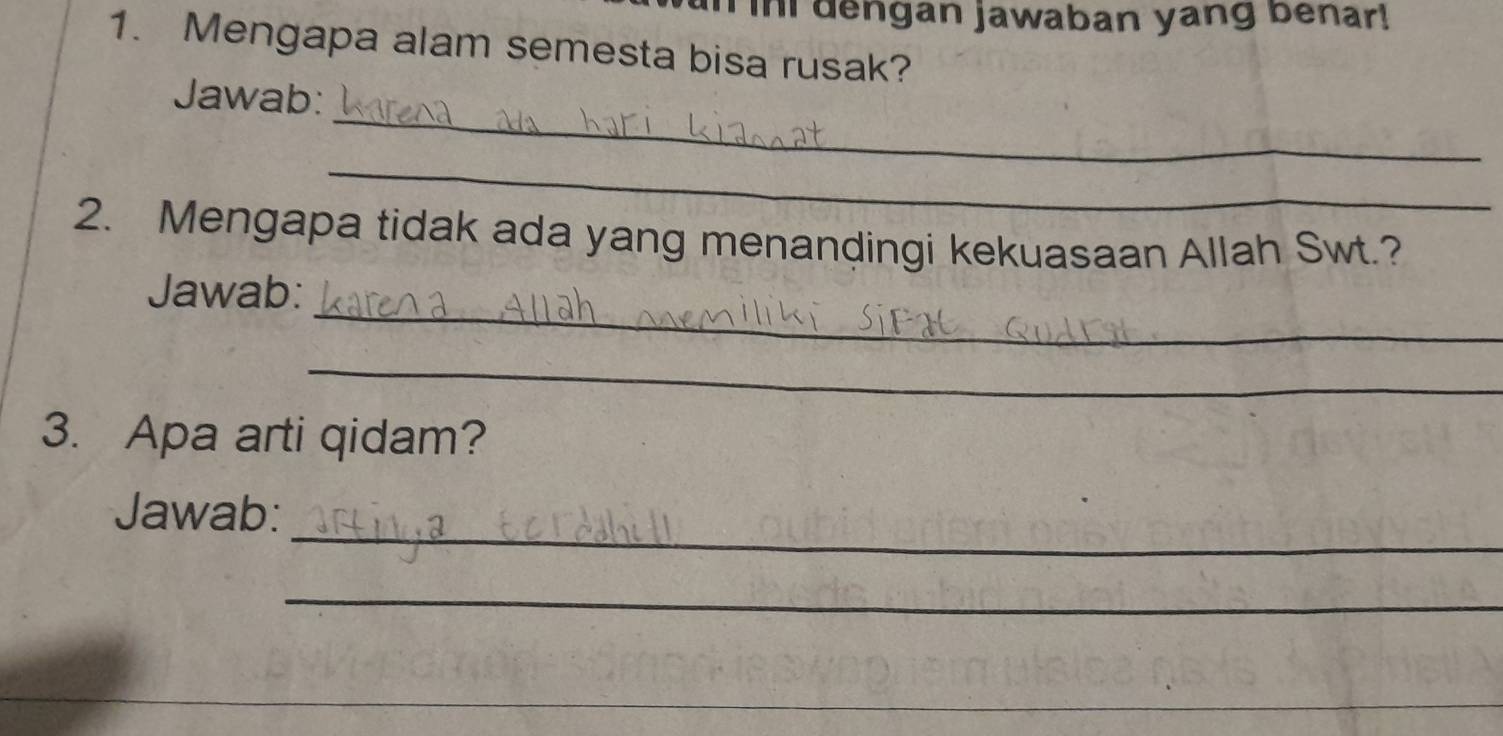 ini dengan jawaban yang benar!
1. Mengapa alam semesta bisa rusak?
Jawab: karena ada hari kiamat
2. Mengapa tidak ada yang menandingi kekuasaan Allah Swt.?
Jawab: karena Allah memiliki sifat Qudrat
3. Apa arti qidam?
Jawab: artinya terdahill